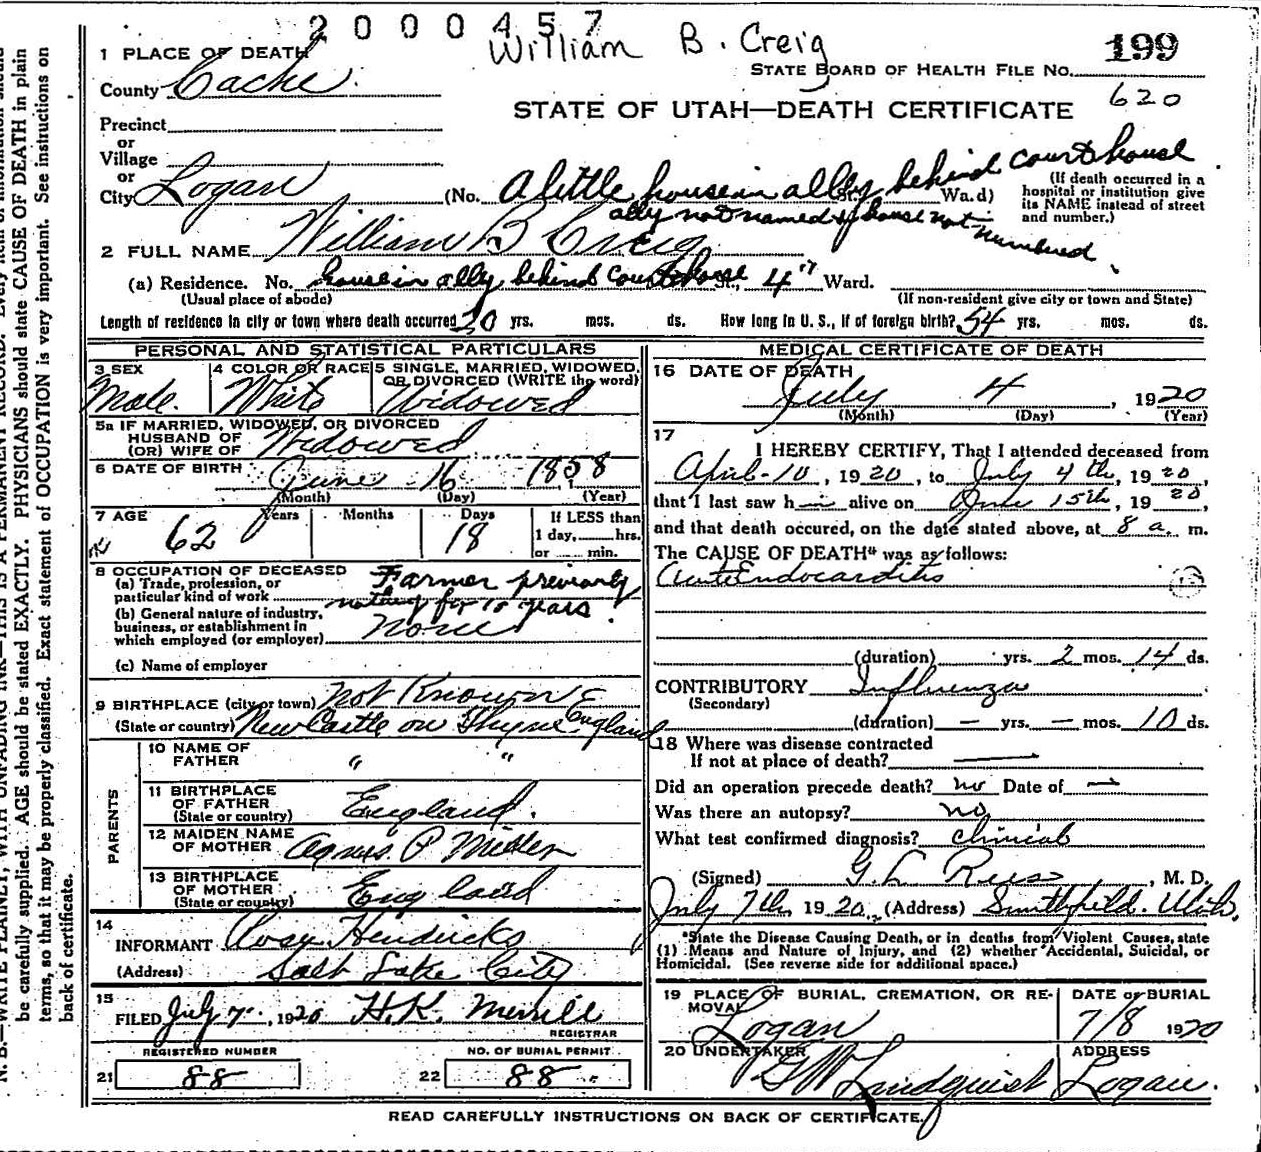 2000457
William B. Creig
199
1 PLACE OF DEATH
STATE BOARD OF HEALTH FILE No.
County Cache
620
STATE OF UTAH—DEATH CERTIFICATE
Precinct
or
Village
or
City Logan (No. A little house in alley behind court house St. Wa.d)
ally not named & house not numbered
(If death occurred in a hospital or institution give its NAME instead of street and number.)
2 FULL NAME William B Creig
(a) Residence. No. house in ally behind court house St., 4" Ward.
(Usual place of abode) (If non-resident give city or town and State)
Length of residence in city or town where death occurred 20 yrs. mos. ds. How long in U. S., if of foreign birth? 54 yrs. mos. ds.
PERSONAL AND STATISTICAL PARTICULARS
3 SEX Male.
4 COLOR OR RACE White
5 SINGLE, MARRIED, WIDOWED, OR DIVORCED (WRITE the word) Widowed
5a IF MARRIED, WIDOWED, OR DIVORCED
HUSBAND OF
(OR) WIFE OF Widowed
6 DATE OF BIRTH June 16 1858
(Month) (Day) (Year)
7 AGE 62 Years Months 18 Days
If LESS than 1 day, hrs. or min.
8 OCCUPATION OF DECEASED
(a) Trade, profession, or particular kind of work Farmer previously nothing for 10 years
(b) General nature of industry, business, or establishment in which employed (or employer) None
(c) Name of employer
9 BIRTHPLACE (city or town) Not Known
(State or country) New Castle on Thyne England
PARENTS
10 NAME OF FATHER " "
11 BIRTHPLACE OF FATHER (State or country) England.
12 MAIDEN NAME OF MOTHER Agnus. P Miller
13 BIRTHPLACE OF MOTHER (State or country) England
14 INFORMANT Rosa Hendricks
(Address) Salt Lake City
15 FILED July 7", 1920 H.K. Merrill
REGISTRAR
REGISTERED NUMBER
21 88
NO. OF BURIAL PERMIT
22 88
MEDICAL CERTIFICATE OF DEATH
16 DATE OF DEATH
July 4, 1920
(Month) (Day) (Year)
17 I HEREBY CERTIFY, That I attended deceased from
April-10, 1920, to July 4th, 1920,
that I last saw h alive on June 15th, 1920,
and that death occured, on the date stated above, at 8 a. m.
The CAUSE OF DEATH* was as follows:
Acute Endocarditis
(duration) yrs. 2 mos. 14 ds.
CONTRIBUTORY Influenza
(Secondary)
(duration) — yrs. — mos. 10 ds.
18 Where was disease contracted
If not at place of death? —
Did an operation precede death? no Date of —
Was there an autopsy? no
What test confirmed diagnosis? Clinical
(Signed) G. L. Rees, M. D.
July 7th 1920, (Address) Smithfield. Utah.
*State the Disease Causing Death, or in deaths from Violent Causes, state
(1) Means and Nature of Injury, and (2) whether Accidental, Suicidal, or
Homicidal. (See reverse side for additional space.)
19 PLACE OF BURIAL, CREMATION, OR REMOVAL Logan
DATE of BURIAL 7/8 1920
20 UNDERTAKER G W Lindquist
ADDRESS Logan.
READ CAREFULLY INSTRUCTIONS ON BACK OF CERTIFICATE.
N. B.—WRITE PLAINLY, WITH UNFADING INK—THIS IS A PERMANENT RECORD. Every item of information should
be carefully supplied. AGE should be stated EXACTLY. PHYSICIANS should state CAUSE OF DEATH in plain
terms, so that it may be properly classified. Exact statement of OCCUPATION is very important. See instructions on
back of certificate.